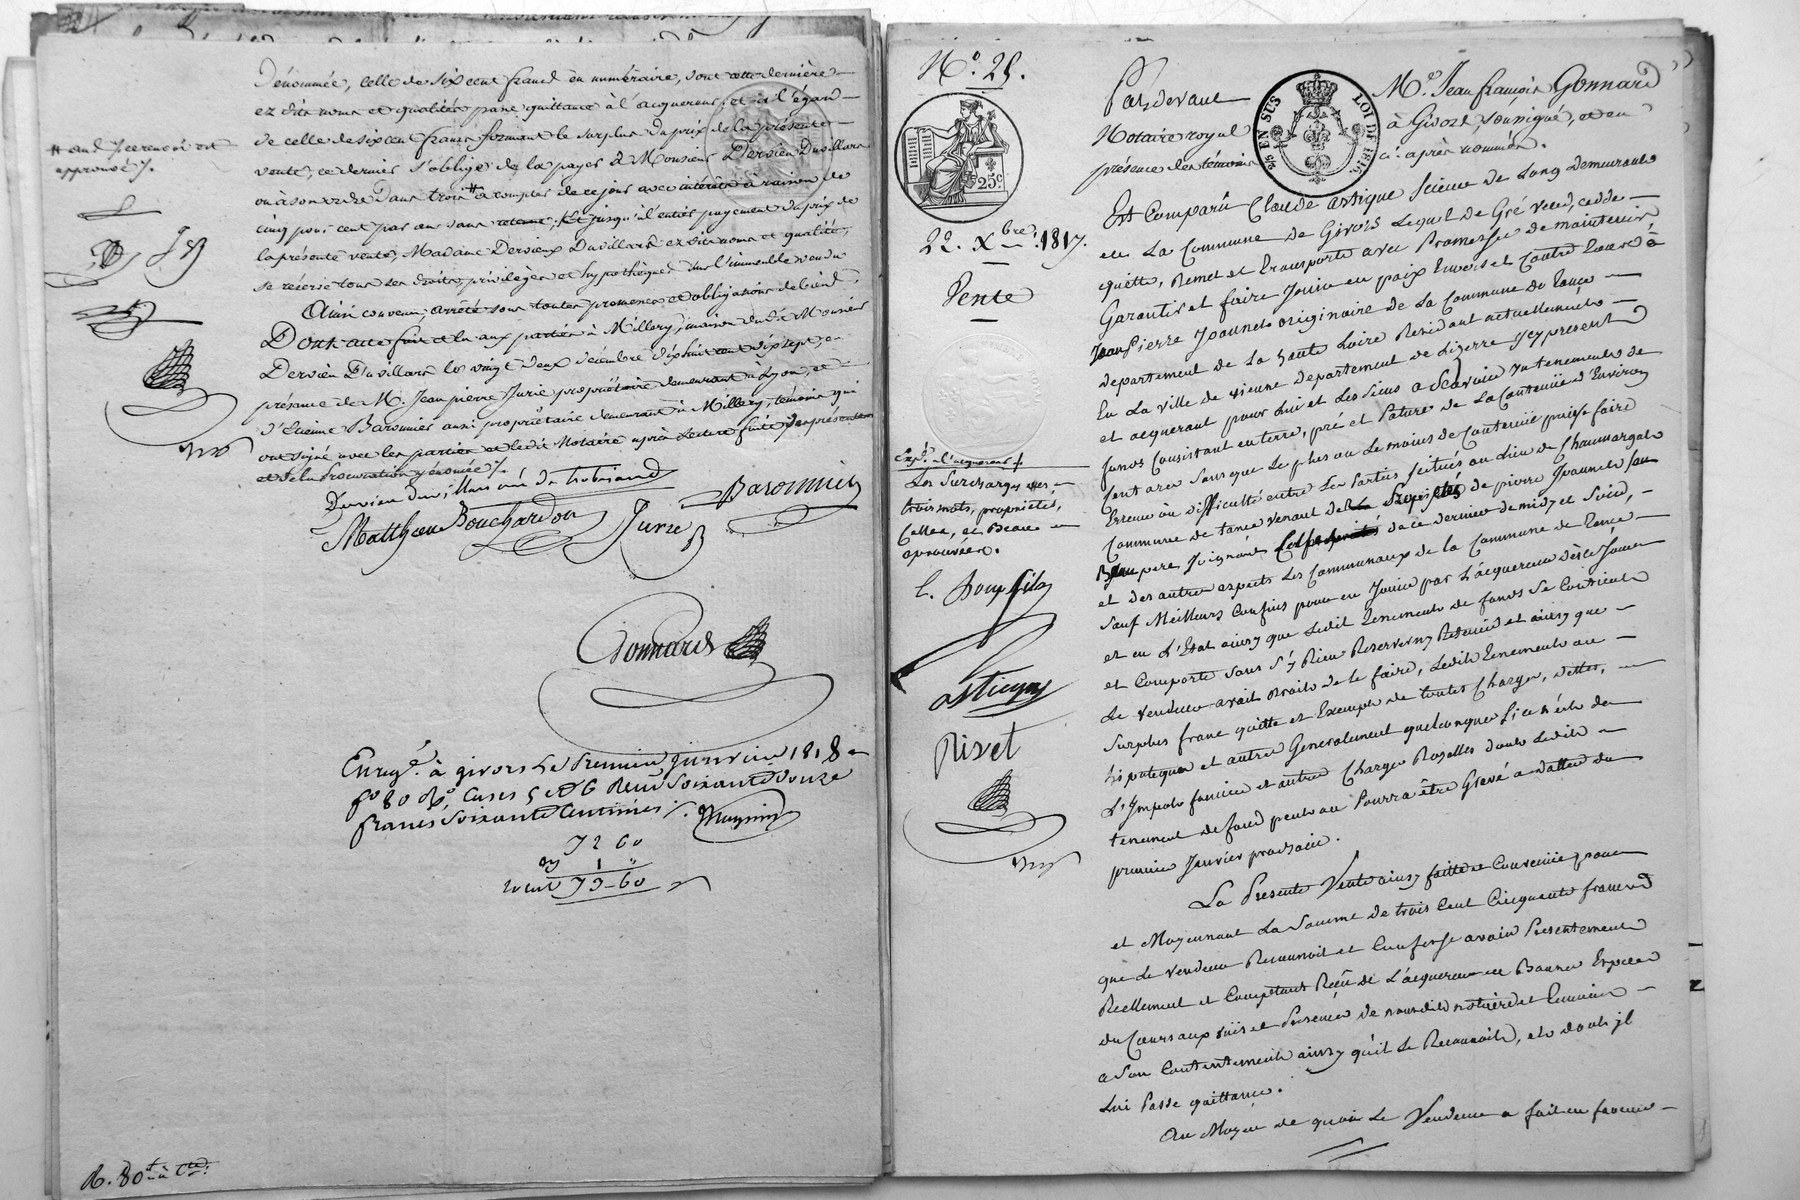 dénommée, celle de six cent francs en numéraire, dont cette dernière
ez dits noms et qualités passe quittance à l'acquereur; et à l'égard
de celle de six cent francs formant le surplus du prix de la présente
vente, ce dernier s'oblige de la payer à Monsieur Dervieu Duvillars
ou à son ordre dans trois # à compter de ce jour avec intérêts à raison de
cinq pour cent par an sans retenue, jusqu'à l'entier payement du prix de
la présente vente, Madame Dervieux Duvillard ez dits noms et qualité,
se réserve tous ses droits, privilèges et hypothèques sur l'immeuble vendu
Ainsi convenu, arrêté sous toutes promesses et obligations de biens,
Dont acte fait et lu aux parties à Millery, maison du dit Monsieur
Dervieu Duvillars le vingt deux décembre dix huit cent dix sept, en
présence de M. Jean pierre Jurie propriétaire demeurant à Lyon, et
d'Etienne Baronnier aussi propriétaire demeurant à Millery, témoins qui
ont signé avec les parties et ledit Notaire après lecture faite des présentes
et de la Procuration y énoncée /.
# ans, Jcerenvoi est
approuvé /.
Dervieu duvillars née de
Matthieu Bouchardon
Jurie
Baronnier
Gonnard
Enregé. à givors Le Premier janvier 1818
fo 80 Ro, Cases 5 et 6 Reçu Soixante douze
francs Soixante Centimes /. Magnin
72 60
1 "
73-60
No. 25.
22. Xbre. 1817.
Vente
25c
25 EN SUS
LOI DE 1816.
Expé. à l'acquereur
Les Surcharges des
trois mots, propriétés,
Celles, et Beau
aprouvées.
astique
Rivet
Pardevant Me. Jean françois Gonnard
Notaire royal à Givors, soussigné, et en
présence des témoins ci après nommés.
Est Comparû Claude astique Scieur de Long demeurant
en La Commune de Givors Lequel de Gré vend, cedde
quitte, Remet et transporte avec Promesse de maintenir
Garantir et faire Jouir en paix Envers et Contre tous à
Jean Pierre Jouanet originaire de La Commune de tance
departement de La haute Loire Residant actuellement
En La ville de vienne departement de Lizerre Jcy present
et acquerant pour Lui et Les Siens a Scavoir un tenement de
fonds Consistant en terre, pré et Pature de La Contenüe d'Environ
cent ares Sans que Le plus ou Le moins de Contenüe puisse faire
Erreur ou difficulté entre Les Parties, Situés au Lieu de Chaumargal
Commune de tance venant de La propriété de pierre Jouanet Son
Beau pere, Joignant Celles de ce dernier de midy et Soir,
et des autres aspects Les Communaux de La Commune de tance
Sauf Meilleurs Confins pour en Jouir par L'acquereur dès ce Jour
et en L'Etat ainsy que Ledit Tenement de fonds Se Contient
et Comporte Sans S'y Rien Reserver ny Retenir et ainsy que
Le vendeur avait droit de le faire, Ledit Tenement au
Surplus franc quitte et Exempt de toutes Charges, dettes,
hipoteques et autres Generalement quelconques Si ce n'est de
L'Impôt foncier et autres Charges Reselles dont Ledit
tenement de fond peut ou Pourra être Grevé a datter du
premier Janvier prochain.
La Presente Vente ainsy faitte et Convenüe, pour
et Moyennant La Somme de trois Cent Cinquante francs
que Le vendeur Reconnoit et Confesse avoir Presentement
Reellement et Comptant Reçu de L'acquereur en Bonnes Especes
du Cours aux vües et Presence de nous dit notaire et temoins
a Son Contentement ainsy qu'il Le Reconnoit, et dont il
Lui Passe quittance.
Au Moyen de quoi Le Vendeur a fait en faveur